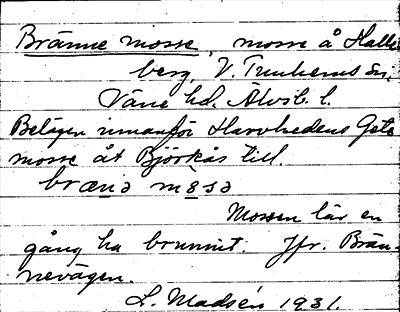 Bränne mosse, mosse å Halle
berg, V. Tunhems sn,
Väne hd. Älvsb. l.
Belägen innanför Havrhedens Gets
mosse åt Björkås till.
brænə mɷsə
Mossen lär en
gång ha brunnit. Jfr. Brän-
nevägen.
L. Madsén 1931.